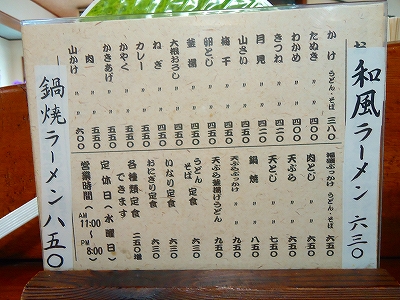 和風ラーメン 六三〇
お
かけ うどん・そば 三八〇
たぬき 〃 四〇〇
わかめ 〃 四〇〇
きつね 〃 四二〇
月見 〃 四二〇
山さい 〃 四五〇
梅干 〃 四五〇
卵とじ 〃 四五〇
釜揚 〃 四五〇
大根おろし 〃 四五〇
ねぎ 〃 四五〇
カレー 〃 五五〇
かやく 〃 五五〇
かきあげ 〃 五五〇
肉 〃 五五〇
山かけ 〃 六〇〇
ぶっかけ うどん・そば 六三〇
肉とじ 〃 六三〇
天ぷら 〃 七五〇
天とじ 〃 七五〇
鍋焼 〃 八五〇
天ぷらぶっかけ 〃 九五〇
天ぷら釜揚げうどん 九五〇
うどん そば 定食 六三〇
いなり定食 六三〇
おにぎり定食 六三〇
各種類定食
できます 二五〇増
定休日(水曜日)
営業時間(AM 11:00〜PM 8:00)
鍋焼ラーメン 八五〇